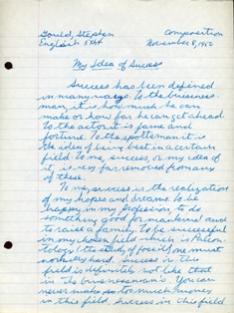 Gould, Stephen
Composition
English 5X4
November 8, 1952
My Idea of Sucess
Success has been defined
in many ways. To the business-
man, it is how much he can
make or how far he can get ahead.
To the actor it is fame and
fortune. To the sportsman it is
the idea of being best in a certain
field. To me, success, or my idea of
it, is very far removed from any
of these.
To me, success is the realization
of my hopes and dreams. To be
happy in my profession, to do
something good for mankind and
to raise a family. To be successful
in my chosen field which is
the study of fossils, one must
work very hard. Success in this
field is definitely not like that
in the businessman's. You can
never make so much money
in this field. Success in this field